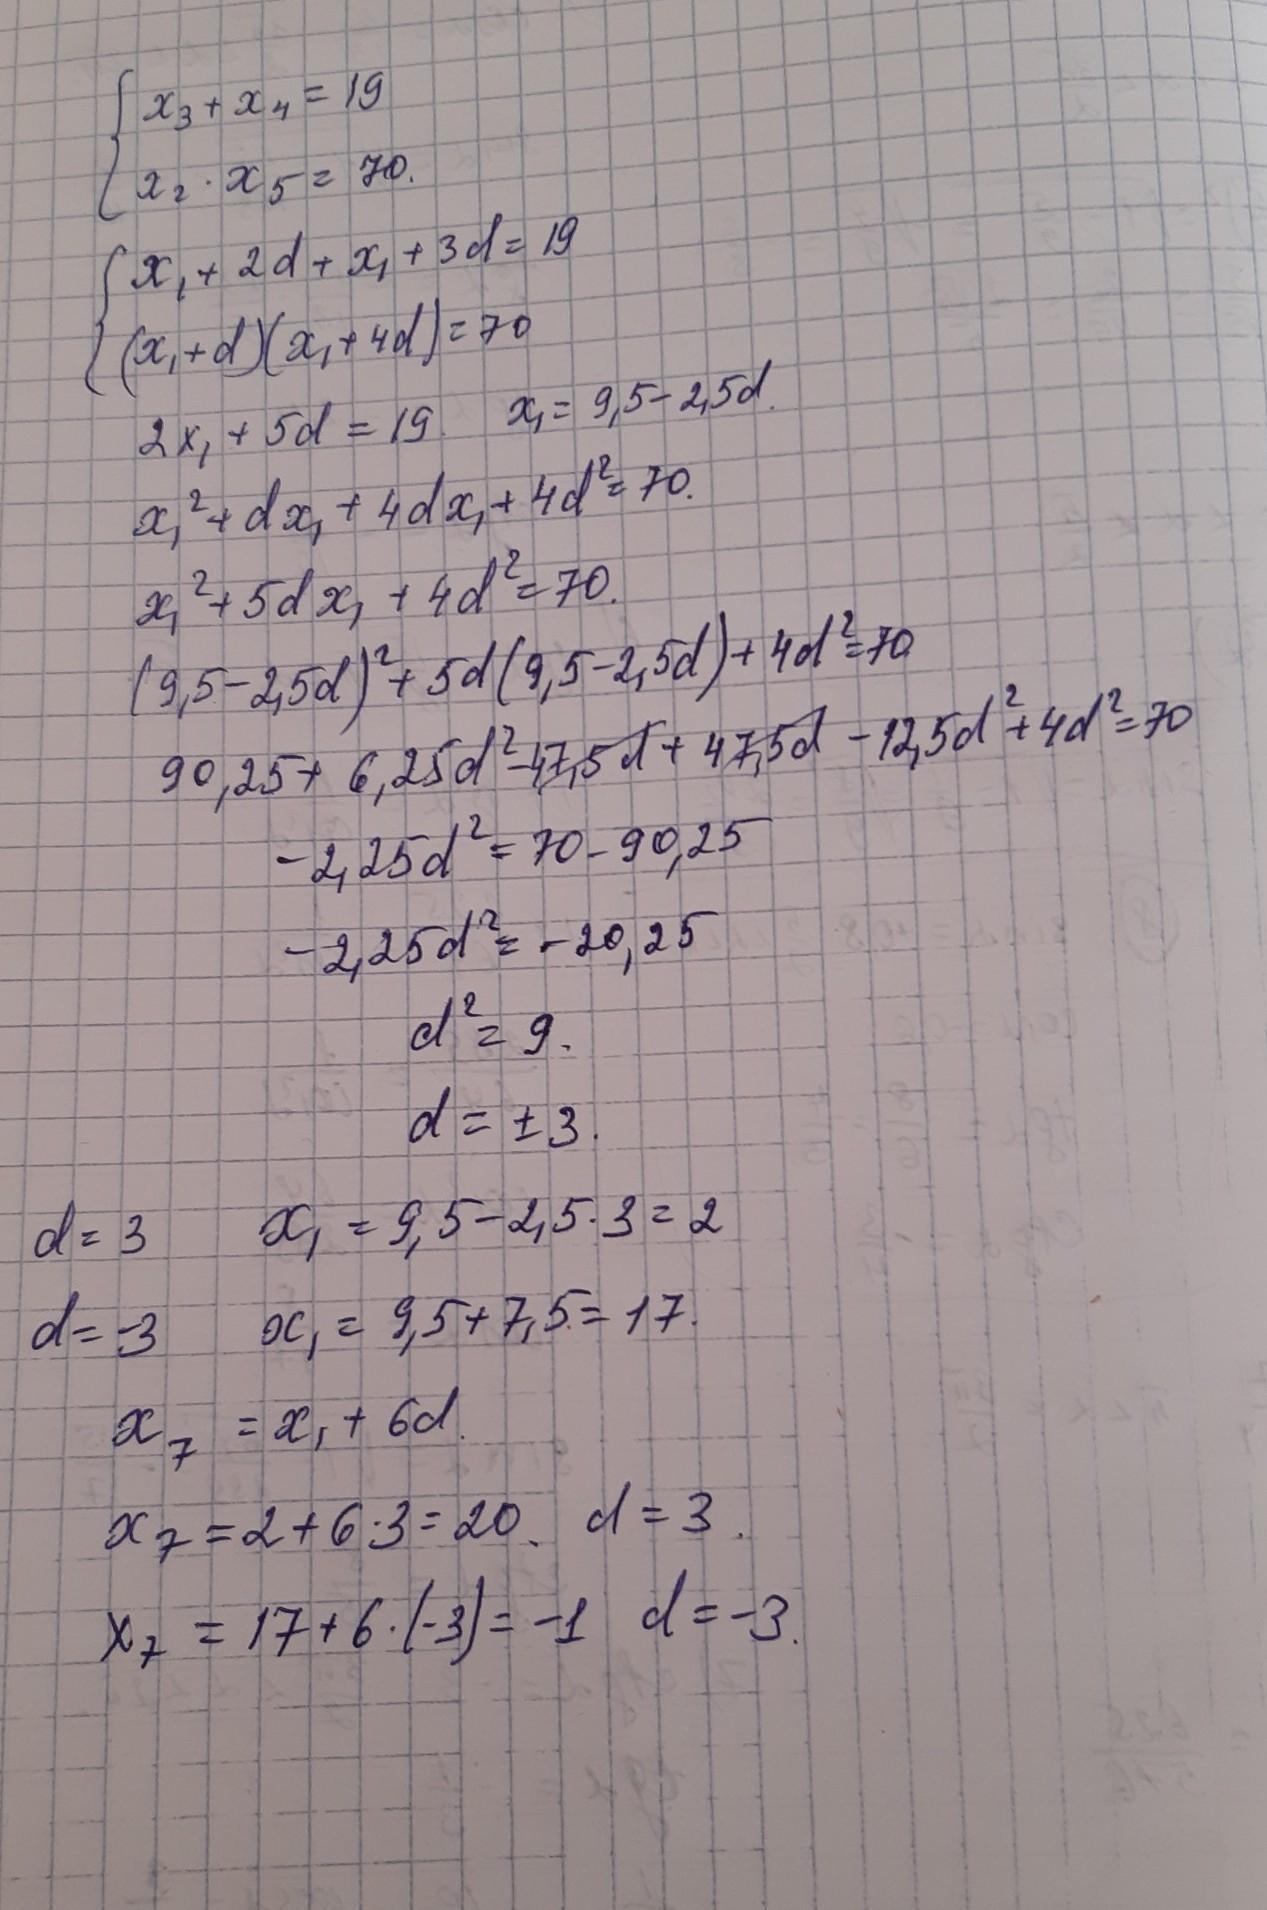 x₃ + x₄ = 19
x₂ · x₅ = 70.
x₁ + 2d + x₁ + 3d = 19
(x₁ + d)(x₁ + 4d) = 70
2x₁ + 5d = 19. x₁ = 9,5 - 2,5d.
x₁² + dx₁ + 4dx₁ + 4d² = 70.
x₁² + 5dx₁ + 4d² = 70.
(9,5 - 2,5d)² + 5d(9,5 - 2,5d) + 4d² = 70
90,25 + 6,25d² - 47,5d + 47,5d - 12,5d² + 4d² = 70
-2,25d² = 70 - 90,25
-2,25d² = -20,25
d² = 9.
d = ±3.
d = 3 x₁ = 9,5 - 2,5·3 = 2
d = -3 x₁ = 9,5 + 7,5 = 17.
x₇ = x₁ + 6d.
x₇ = 2 + 6·3 = 20. d = 3.
x₇ = 17 + 6·(-3) = -1 d = -3.